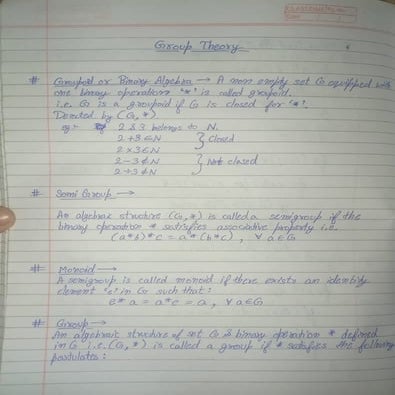 Group Theory
# Groupoid or Binary Algebra → A non empty set G equipped with
one binary operation '*' is called groupoid.
i.e. G is a groupoid if G is closed for '*'.
Denoted by (G, *).
eg:- 2 & 3 belongs to N.
2+3 ∈ N } Closed
2×3 ∈ N
2-3 ∉ N } Not closed
2÷3 ∉ N
# Semi Group →
An algebraic structure (G, *) is called a semigroup if the
binary operation * satisfies associative property i.e.
(a*b)*c = a*(b*c), ∀ a ∈ G
# Monoid →
A semigroup is called monoid if there exists an identity
element 'e' in G such that:
e*a = a*e = a, ∀ a ∈ G
# Group →
An algebraic structure of set G & binary operation * defined
in G i.e. (G, *) is called a group if * satisfies the following
postulates: